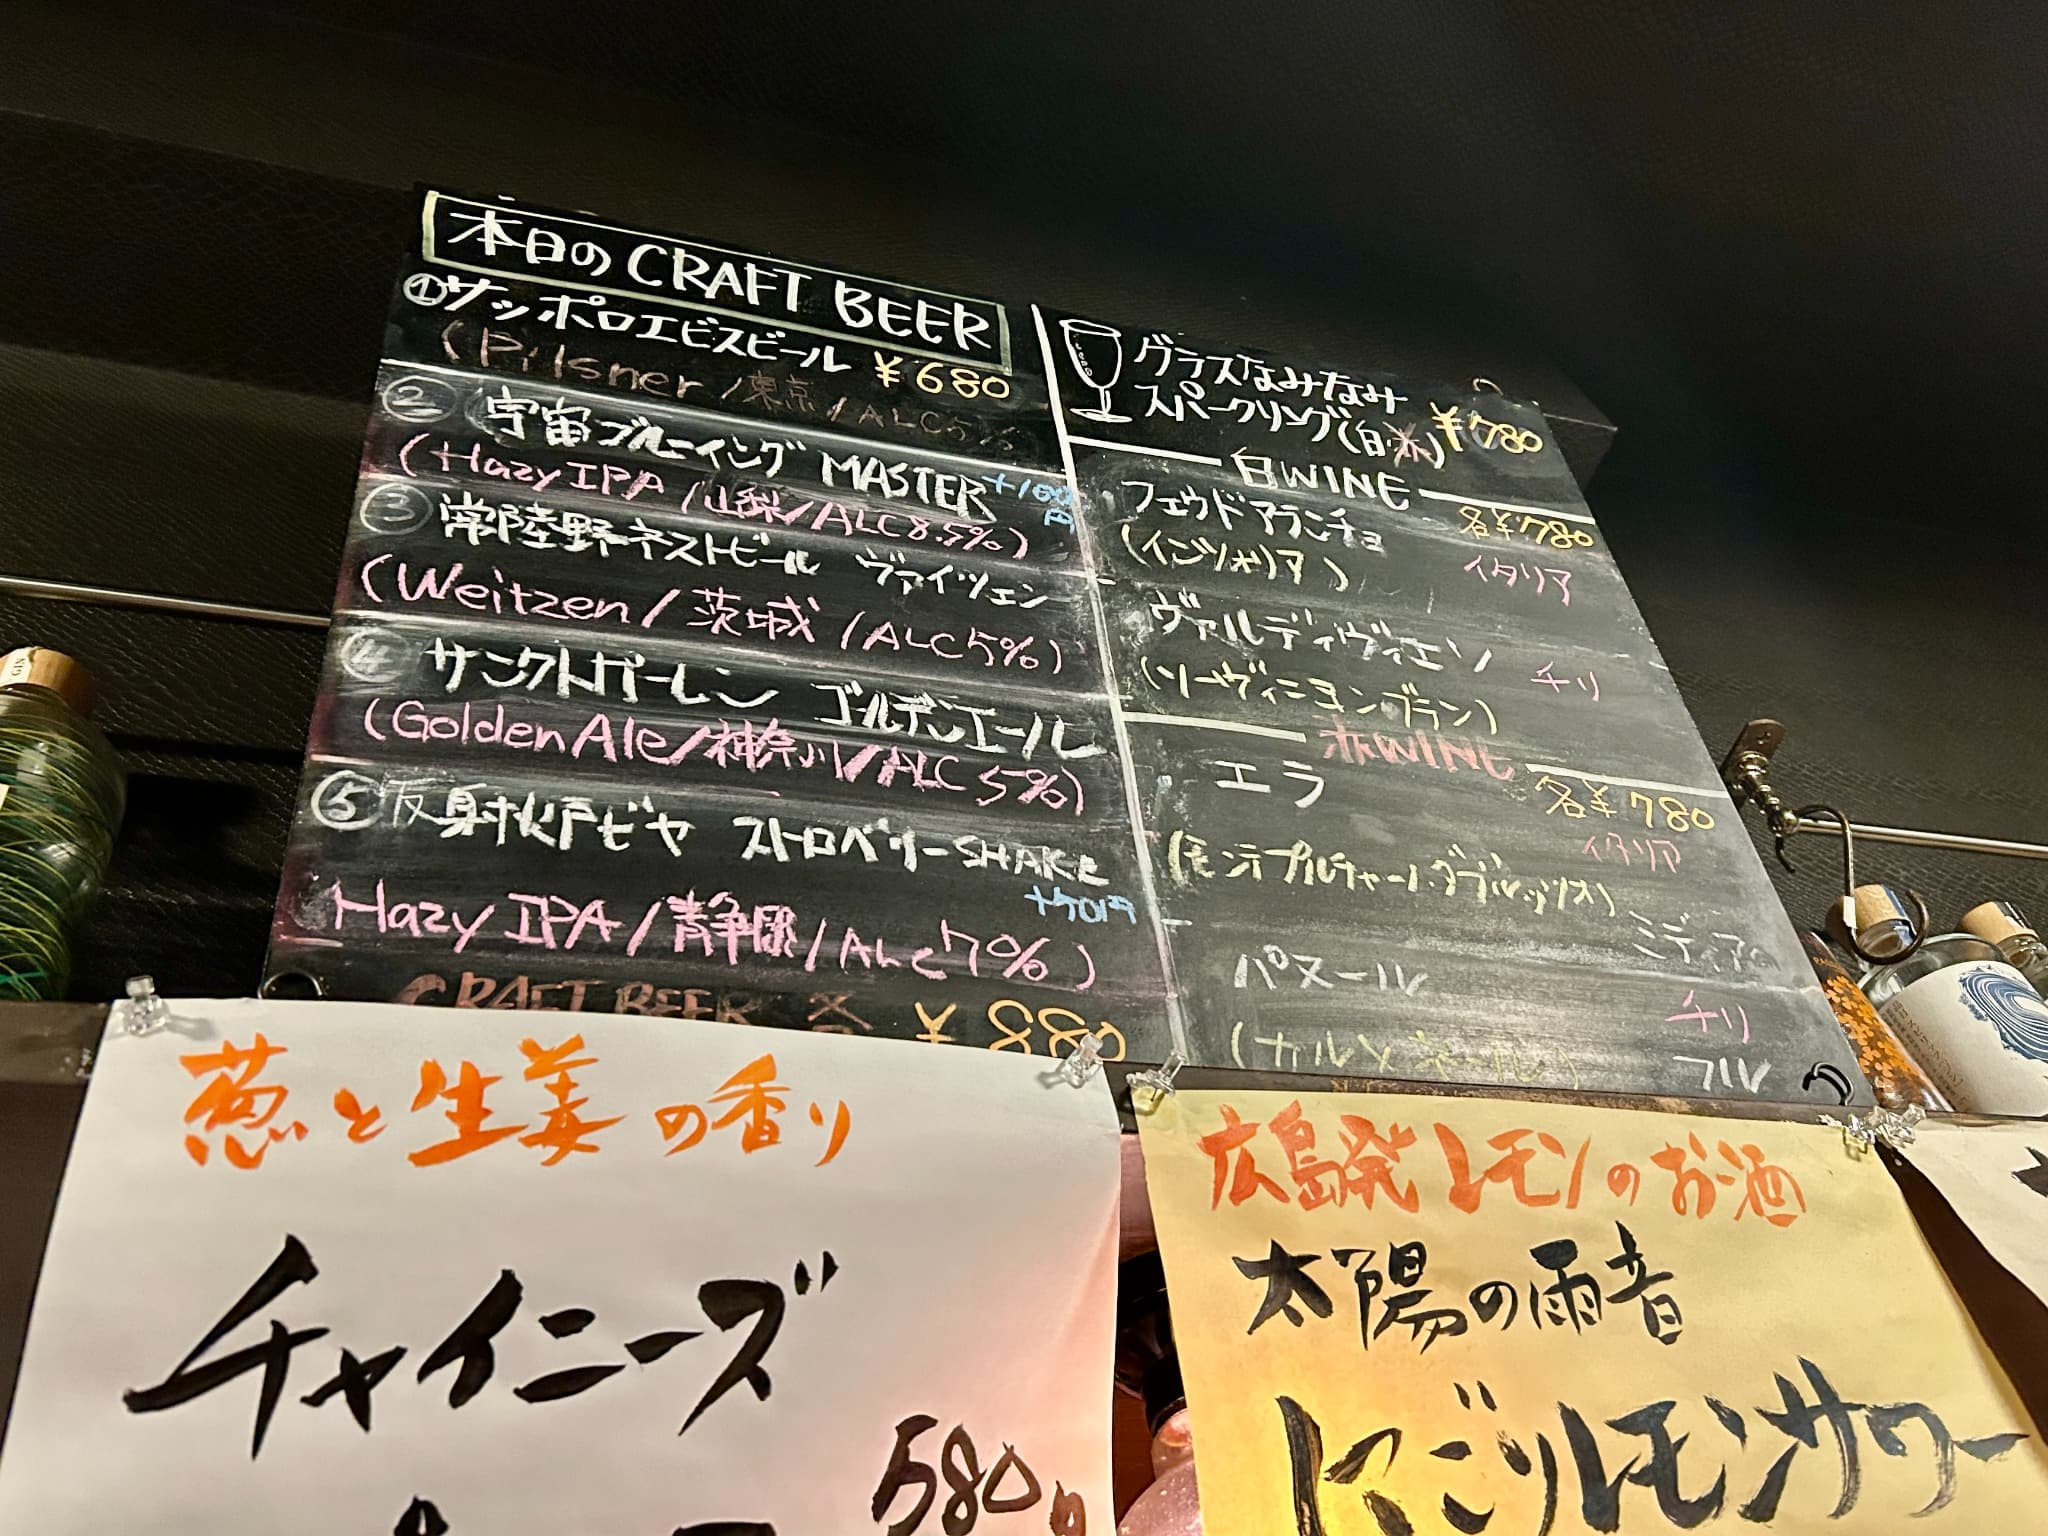 本日の CRAFT BEER
①サッポロエビスビール ¥680
(Pilsner/東京/ALC5%
② 宇宙ブルーイング MASTER +100円
(Hazy IPA/山梨/ALC8.5%)
③ 常陸野ネストビール ヴァイツェン
(Weitzen/茨城/ALC5%)
④ サンクトガーレン ゴールデンエール
(Golden Ale/神奈川/ALC 5%)
⑤ 反射炉ビヤ ストロベリーSHAKE
Hazy IPA/静岡/ALC7%)
CRAFT BEER 各 ¥880
グラスなみなみ
スパークリング(白・赤) ¥780
白WINE
各¥780
フェウド アランチョ
(インツォリア) イタリア
ヴァルディヴィエソ
(ソーヴィニヨンブラン) チリ
赤WINE
エラ 各¥780
イタリア
(モンテプルチャーノ・ダブルッツォ)
ミディアム
パヌール チリ
(カルメネール) フル
葱と生姜の香り
チャイニーズ
580円
広島発レモンのお酒
太陽の雨音
にごりレモンサワー
GIN